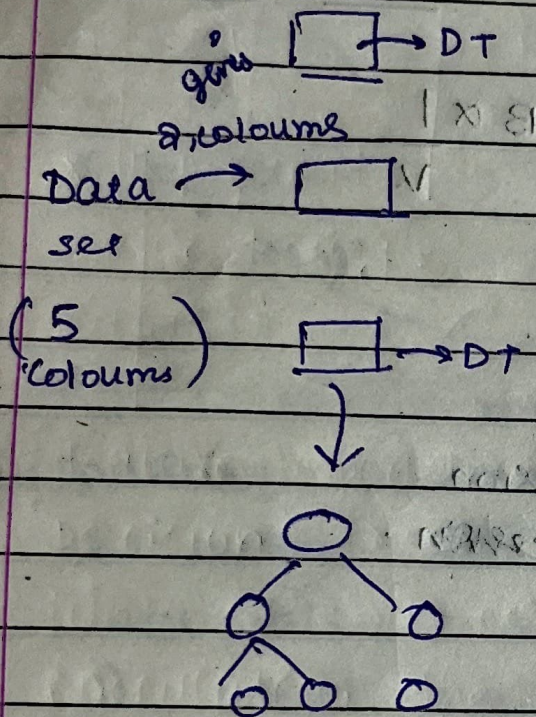 → DT
gives
2, coloums
Data →
set
(5
coloums)
→ DT